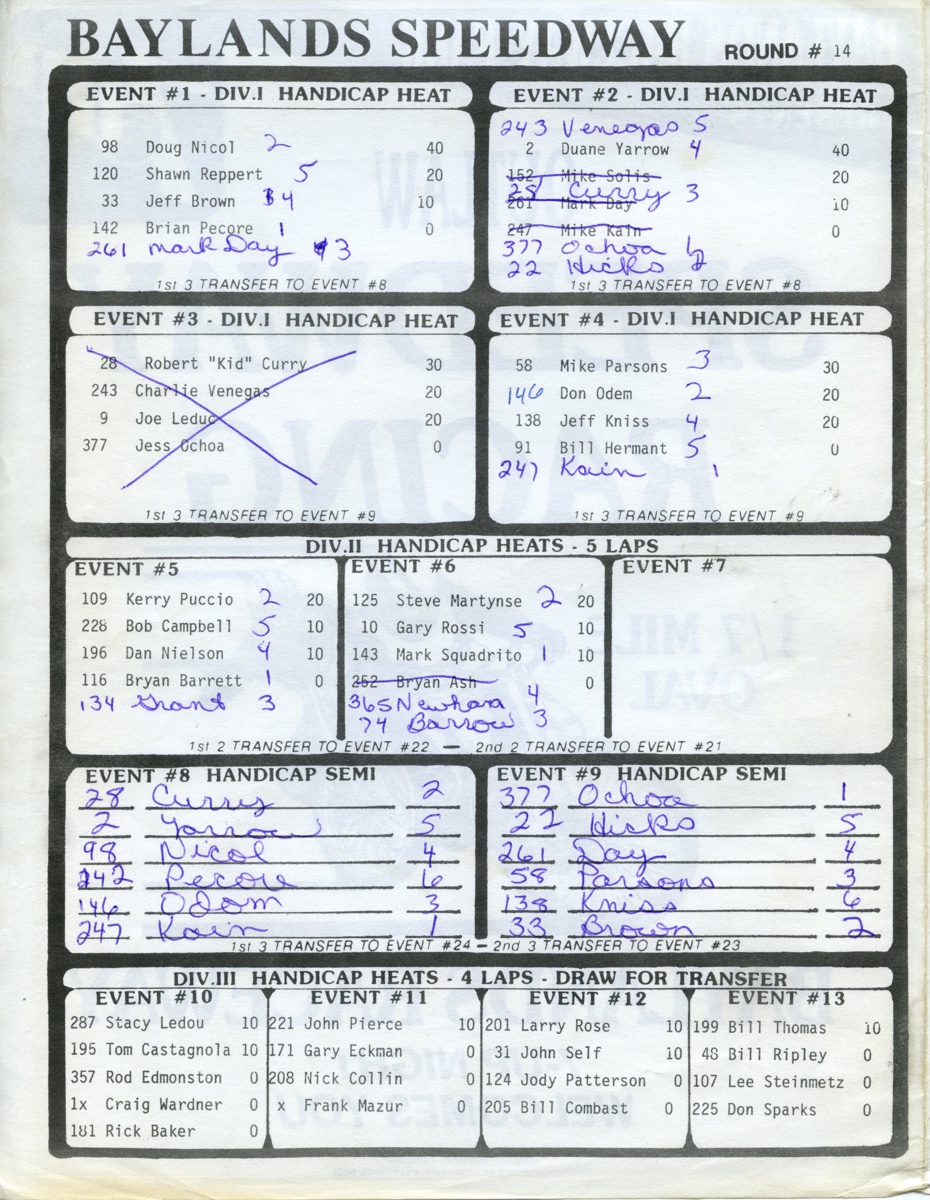 BAYLANDS SPEEDWAY ROUND # 14
EVENT #1 - DIV.I HANDICAP HEAT
98 Doug Nicol 2 40
120 Shawn Reppert 5 20
33 Jeff Brown 4 10
142 Brian Pecore 1 0
261 Mark Day 3
1st 3 TRANSFER TO EVENT #8
EVENT #2 - DIV.I HANDICAP HEAT
243 Venegas 5
2 Duane Yarrow 4 40
152 Mike Solis 20
28 Curry 3
261 Mark Day 10
247 Mike Kain 0
377 Ochoa
22 Hicks 2
1st 3 TRANSFER TO EVENT #8
EVENT #3 - DIV.I HANDICAP HEAT
28 Robert "Kid" Curry 30
243 Charlie Venegas 20
9 Joe Leduc 20
377 Jess Ochoa 0
1st 3 TRANSFER TO EVENT #9
EVENT #4 - DIV.I HANDICAP HEAT
58 Mike Parsons 3 30
146 Don Odem 2 20
138 Jeff Kniss 4 20
91 Bill Hermant 5 0
247 Kain 1
1st 3 TRANSFER TO EVENT #9
DIV.II HANDICAP HEATS - 5 LAPS
EVENT #5
109 Kerry Puccio 2 20
228 Bob Campbell 5 10
196 Dan Nielson 4 10
116 Bryan Barrett 1 0
134 Grant 3
EVENT #6
125 Steve Martynse 2 20
10 Gary Rossi 5 10
143 Mark Squadrito 1 10
252 Bryan Ash 0
365 Newham 4
74 Barrow 3
EVENT #7
1st 2 TRANSFER TO EVENT #22 — 2nd 2 TRANSFER TO EVENT #21
EVENT #8 HANDICAP SEMI
28 Curry 2
2 Yarrow 5
98 Nicol 4
142 Pecore 6
146 Odom 3
247 Kain 1
EVENT #9 HANDICAP SEMI
377 Ochoa 1
22 Hicks 5
261 Day 4
58 Parsons 3
138 Kniss 6
33 Brown 2
1st 3 TRANSFER TO EVENT #24 — 2nd 3 TRANSFER TO EVENT #23
DIV.III HANDICAP HEATS - 4 LAPS - DRAW FOR TRANSFER
EVENT #10
287 Stacy Ledou 10
195 Tom Castagnola 10
357 Rod Edmonston 0
1x Craig Wardner 0
181 Rick Baker 0
EVENT #11
221 John Pierce 10
171 Gary Eckman 0
208 Nick Collin 0
x Frank Mazur 0
EVENT #12
201 Larry Rose 10
31 John Self 10
124 Jody Patterson 0
205 Bill Combast 0
EVENT #13
199 Bill Thomas 10
48 Bill Ripley 0
107 Lee Steinmetz 0
225 Don Sparks 0